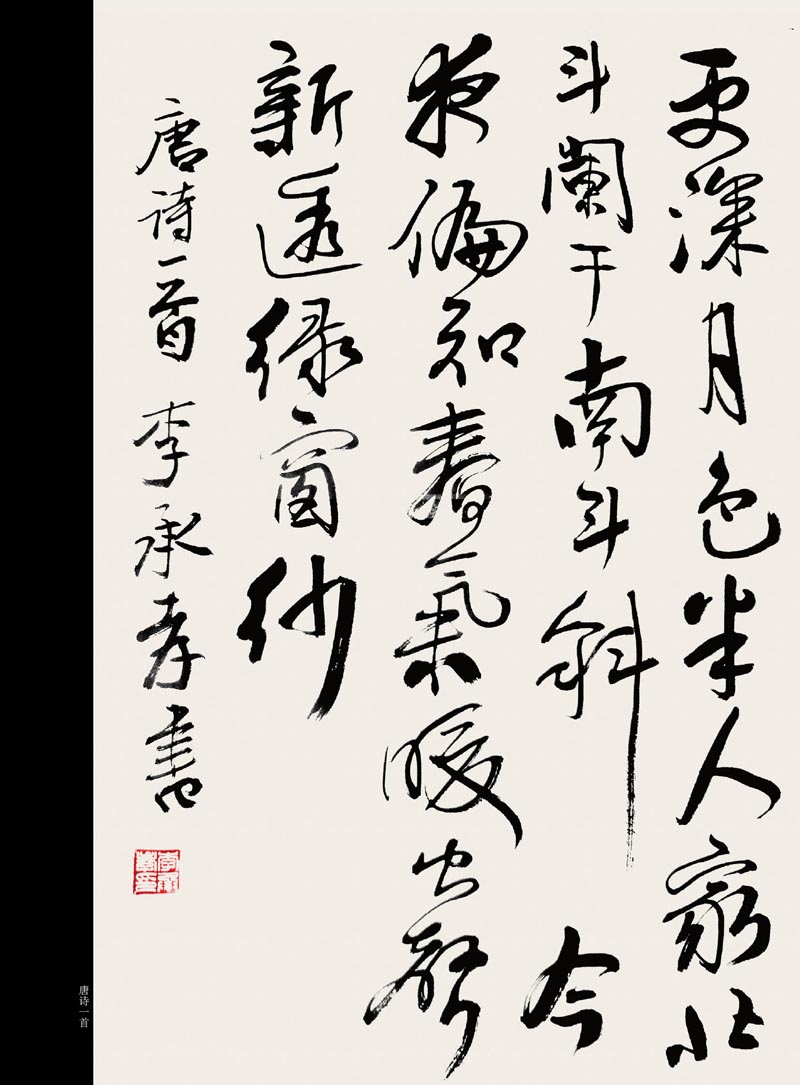 更深月色半人家北
斗阑干南斗斜今
夜偏知春氣暖虫聲
新透绿窗纱
唐诗一首 李承孝书
唐诗一首